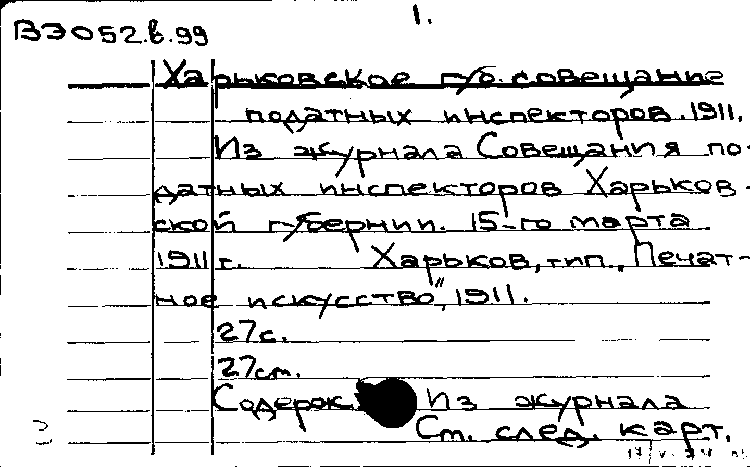 1.
ВЭ052.в.99
Харьковское губ. совещание
податных инспекторов. 1911.
Из журнала Совещания по-
датных инспекторов Харьков-
ской губернии. 15-го марта
1911 г. Харьков, тип. „Печат-
ное искусство", 1911.
27с.
27см.
Содерж. Из журнала
См. след. карт.